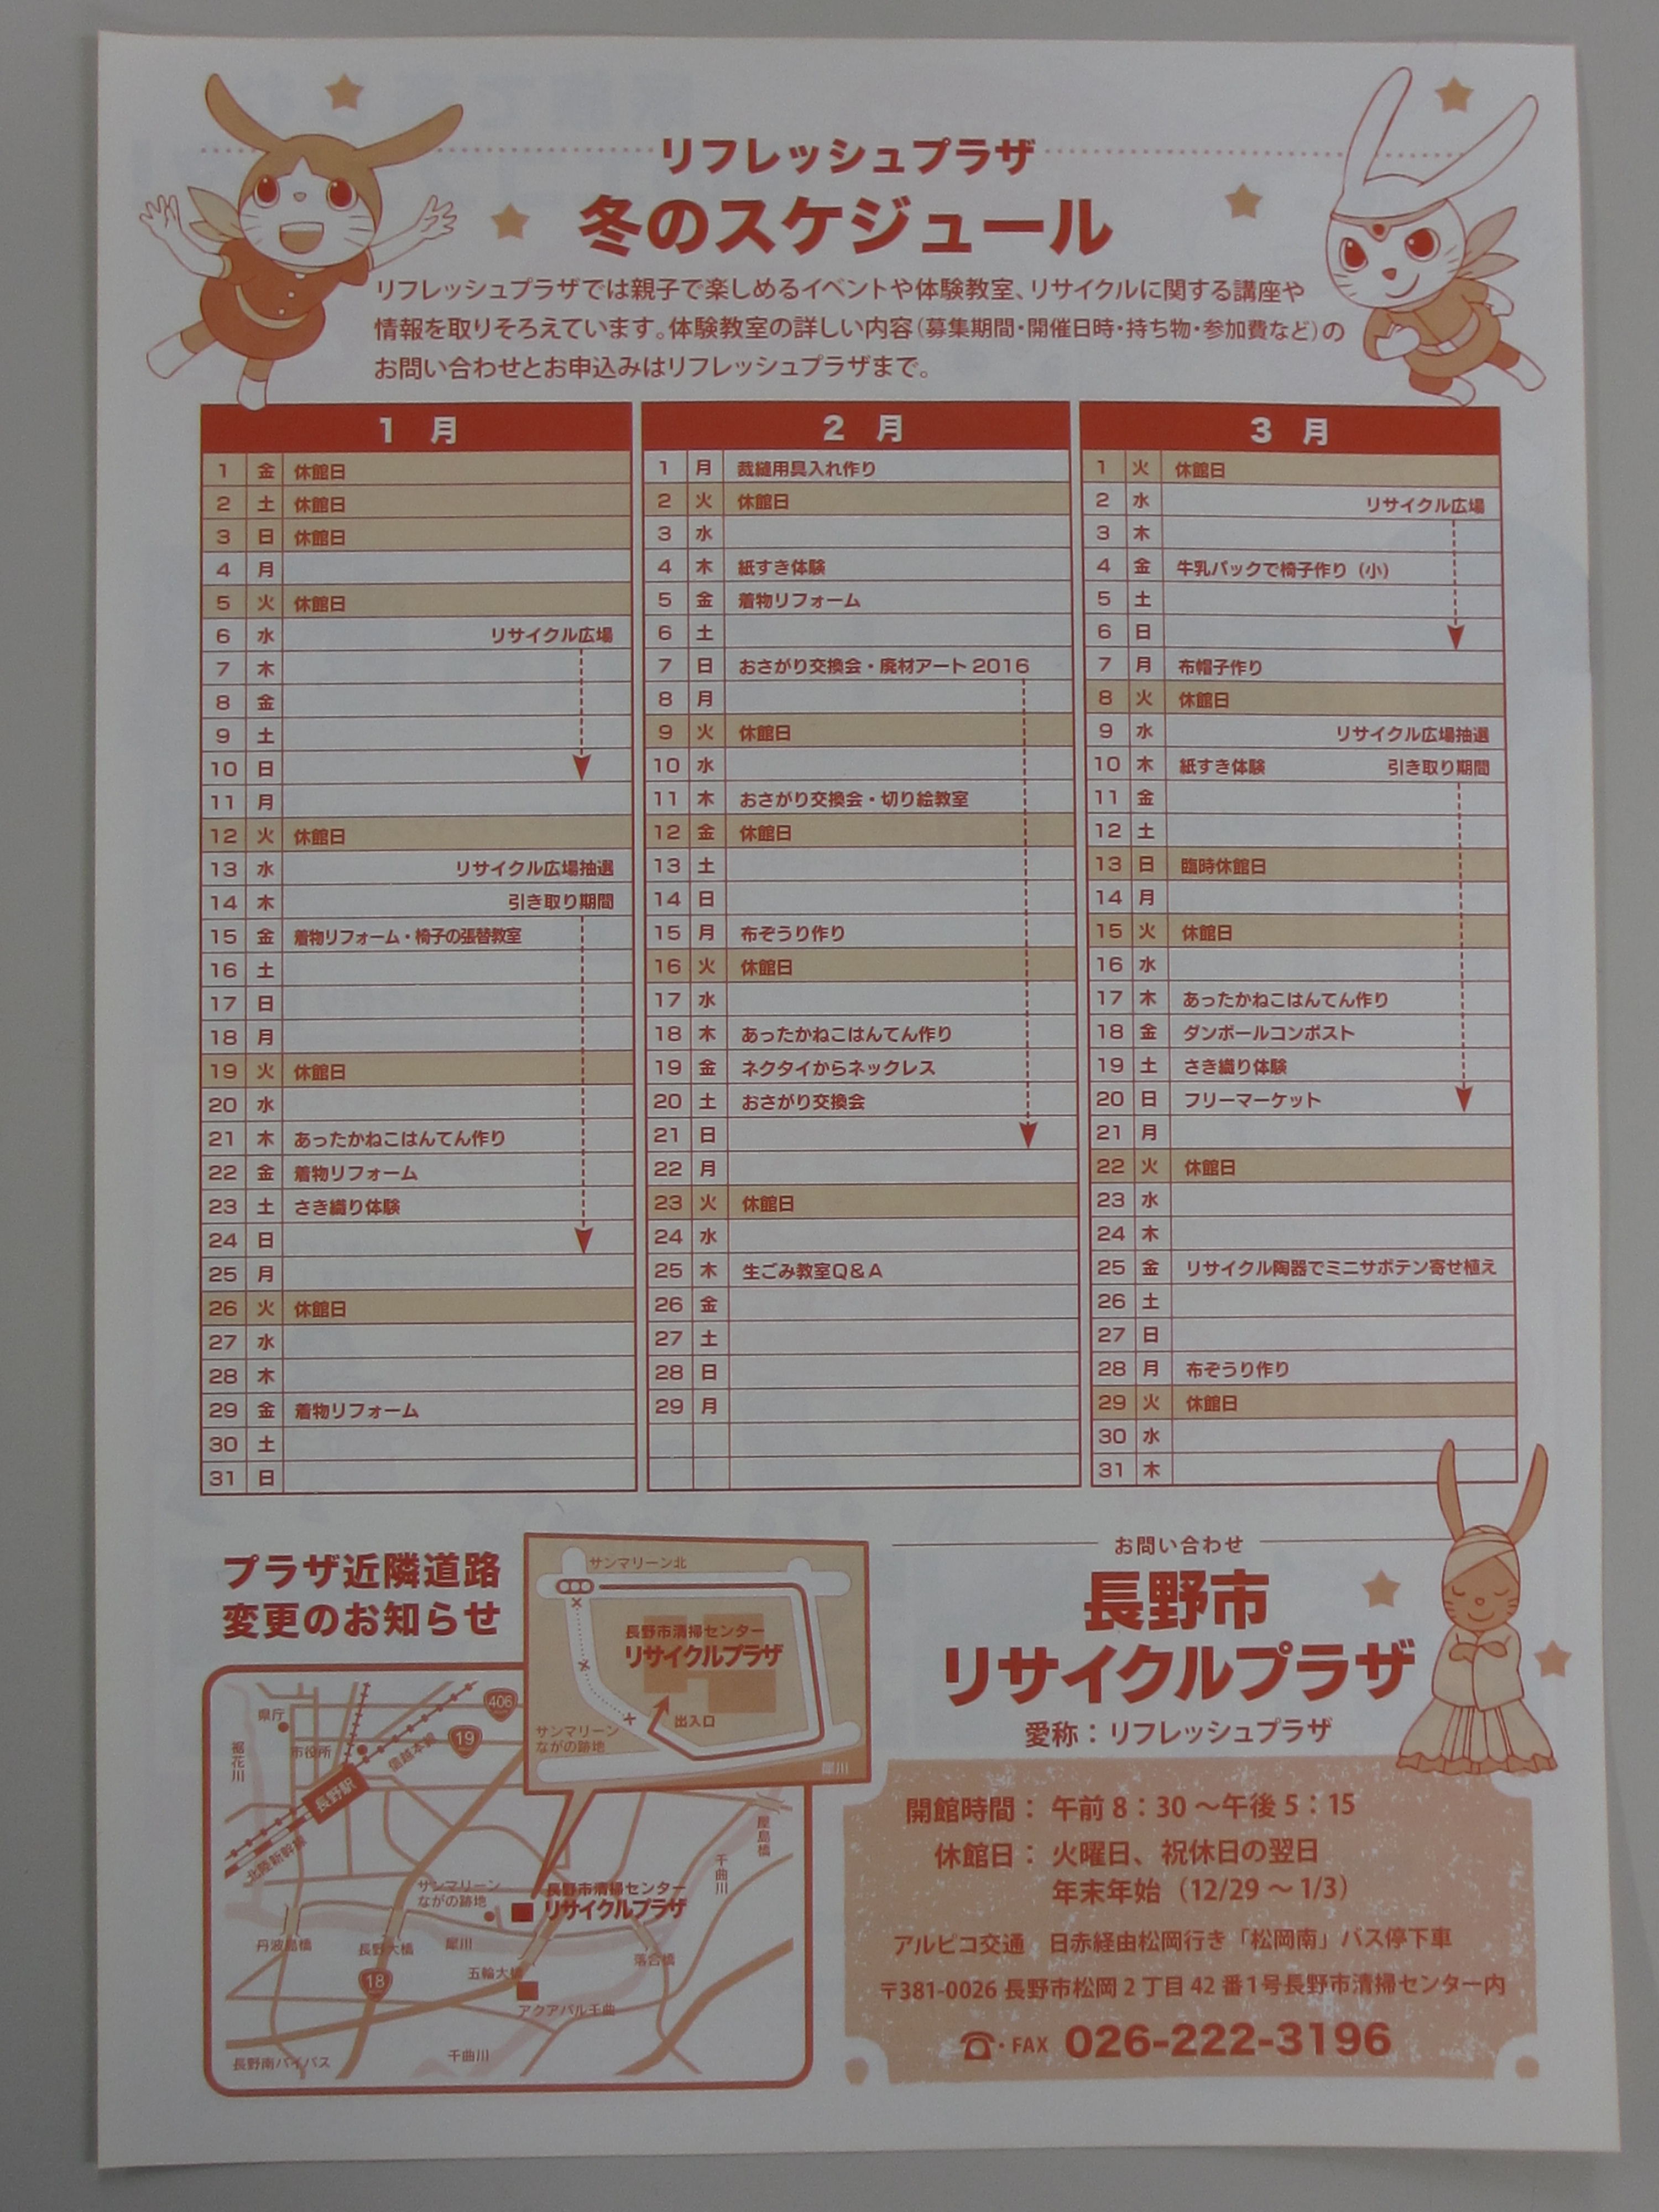 リフレッシュプラザ
冬のスケジュール
リフレッシュプラザでは親子で楽しめるイベントや体験教室、リサイクルに関する講座や
情報を取りそろえています。体験教室の詳しい内容(募集期間・開催日時・持ち物・参加費など)の
お問い合わせとお申込みはリフレッシュプラザまで。
1 月
1 金 休館日
2 土 休館日
3 日 休館日
4 月
5 火 休館日
6 水 リサイクル広場
7 木
8 金
9 土
10 日
11 月
12 火 休館日
13 水 リサイクル広場抽選
14 木 引き取り期間
15 金 着物リフォーム・椅子の張替教室
16 土
17 日
18 月
19 火 休館日
20 水
21 木 あったかねこはんてん作り
22 金 着物リフォーム
23 土 さき織り体験
24 日
25 月
26 火 休館日
27 水
28 木
29 金 着物リフォーム
30 土
31 日
2 月
1 月 裁縫用具入れ作り
2 火 休館日
3 水
4 木 紙すき体験
5 金 着物リフォーム
6 土
7 日 おさがり交換会・廃材アート 2016
8 月
9 火 休館日
10 水
11 木 おさがり交換会・切り絵教室
12 金 休館日
13 土
14 日
15 月 布ぞうり作り
16 火 休館日
17 水
18 木 あったかねこはんてん作り
19 金 ネクタイからネックレス
20 土 おさがり交換会
21 日
22 月
23 火 休館日
24 水
25 木 生ごみ教室Q&A
26 金
27 土
28 日
29 月
3 月
1 火 休館日
2 水 リサイクル広場
3 木
4 金 牛乳パックで椅子作り(小)
5 土
6 日
7 月 布帽子作り
8 火 休館日
9 水 リサイクル広場抽選
10 木 紙すき体験 引き取り期間
11 金
12 土
13 日 臨時休館日
14 月
15 火 休館日
16 水
17 木 あったかねこはんてん作り
18 金 ダンボールコンポスト
19 土 さき織り体験
20 日 フリーマーケット
21 月
22 火 休館日
23 水
24 木
25 金 リサイクル陶器でミニサボテン寄せ植え
26 土
27 日
28 月 布ぞうり作り
29 火 休館日
30 水
31 木
プラザ近隣道路
変更のお知らせ
サンマリーン北
長野市清掃センター
リサイクルプラザ
出入口
サンマリーン
ながの跡地
犀川
406
19
県庁
市役所
信越本線
裾花川
長野駅
北陸新幹線
屋島橋
千曲川
サンマリーン
ながの跡地
長野市清掃センター
リサイクルプラザ
丹波島橋
長野大橋
犀川
落合橋
18
五輪大橋
アクアパル千曲
長野南バイパス
千曲川
お問い合わせ
長野市
リサイクルプラザ
愛称:リフレッシュプラザ
開館時間: 午前 8:30 ~午後 5:15
休館日: 火曜日、祝休日の翌日
年末年始(12/29 ~ 1/3)
アルピコ交通 日赤経由松岡行き「松岡南」バス停下車
〒381-0026 長野市松岡 2 丁目 42 番 1 号長野市清掃センター内
☎・FAX 026-222-3196